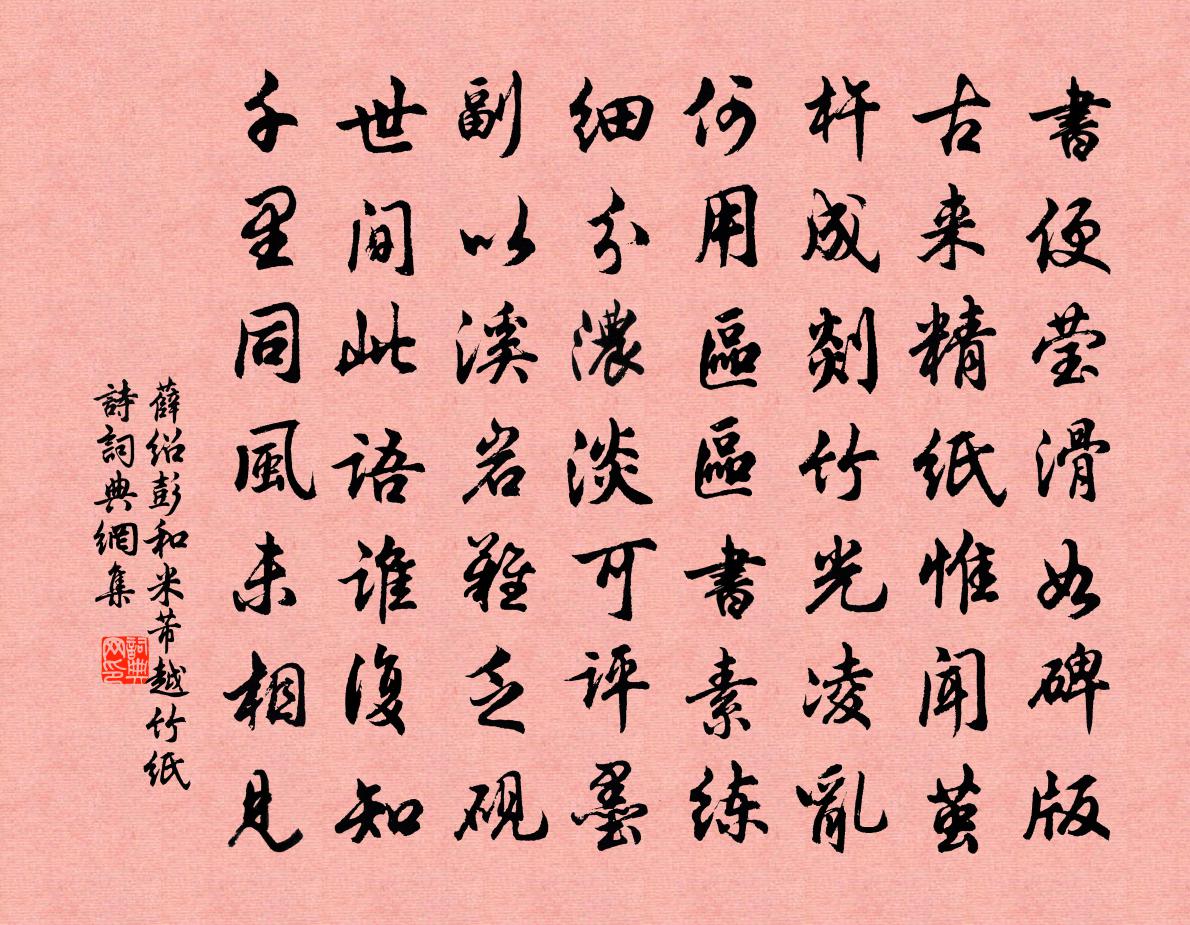 書便莹滑如碑版
古来精紙惟闻茧
杵成剡竹光凌亂
何用區區書素练
细分濃淡可评墨
副以溪岩難乏砚
世间此語谁復知
千里同風未相見
薛绍彭和米芾越竹紙
詩詞典網集
詞典网印